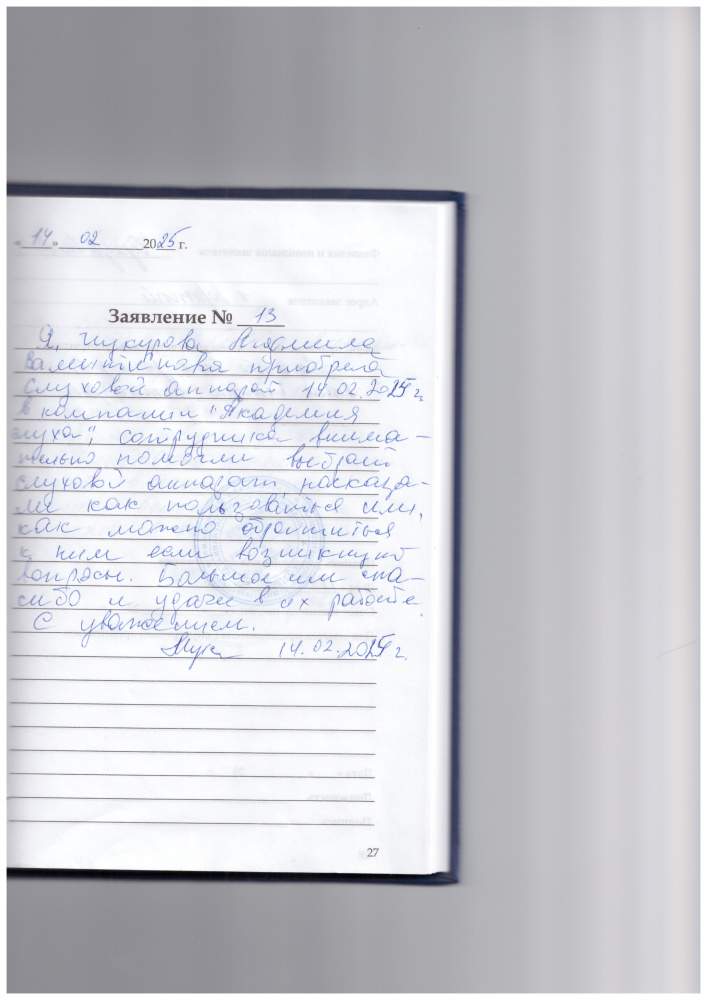 « 14 » 02 2025 г.
Заявление № 13
Я, Чукурова Людмила
Валентиновна приобрела
слуховой аппарат 14.02.2025 г.
в компании "Академия
слуха", сотрудника внима-
тельно помогли выбрать
слуховой аппарат, расказа-
ли как пользоваться или,
как можно обратиться
к ним если возникнут
вопросы. Большое им спа-
сибо и удачи в их работе.
С уважением.
14.02.2025 г.
27